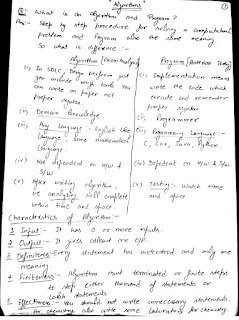 Algorithms
①
Q: What is an Algorithm and Program?
Ans:- Step by step procedure for solving a computational
problem and Program also the same meaning
So what is difference:-
Algorithm (Priori Analysis)
Program (Posteriori Testing)
(i) In SDLC, Design perform just
you include rough code. You
can write on paper not
proper syntax.
(i) Implementation means
write the code which
execute and remember
proper syntax
(ii) Domain Knowledge
(ii) Programmer
(iii) Any Language:- English Like
Language, Some mathematical
Language
(iii) Programming Language:-
C, C++, Java, Python
(iv) Not dependent on H/w &
S/w
(iv) Dependent on H/w & S/w
(v) After writing algorithm,
be analysing will complete
within time and space.
(v) Testing:- Watch time
and space
Characteristics of Algorithm:-
1 Input:- It has 0 or more inputs.
2 Output:- It gives atleast one o/p.
3 Definiteness:- Every statement has understood and only one
meaning
4 Finiteness:- Algorithm must terminated or finite steps
to stop either thousand of statements or
Lakhs statements
5 Effectiveness:- You should not write unnecessary statements.
For chemistry also write some laboratory for chemistry.